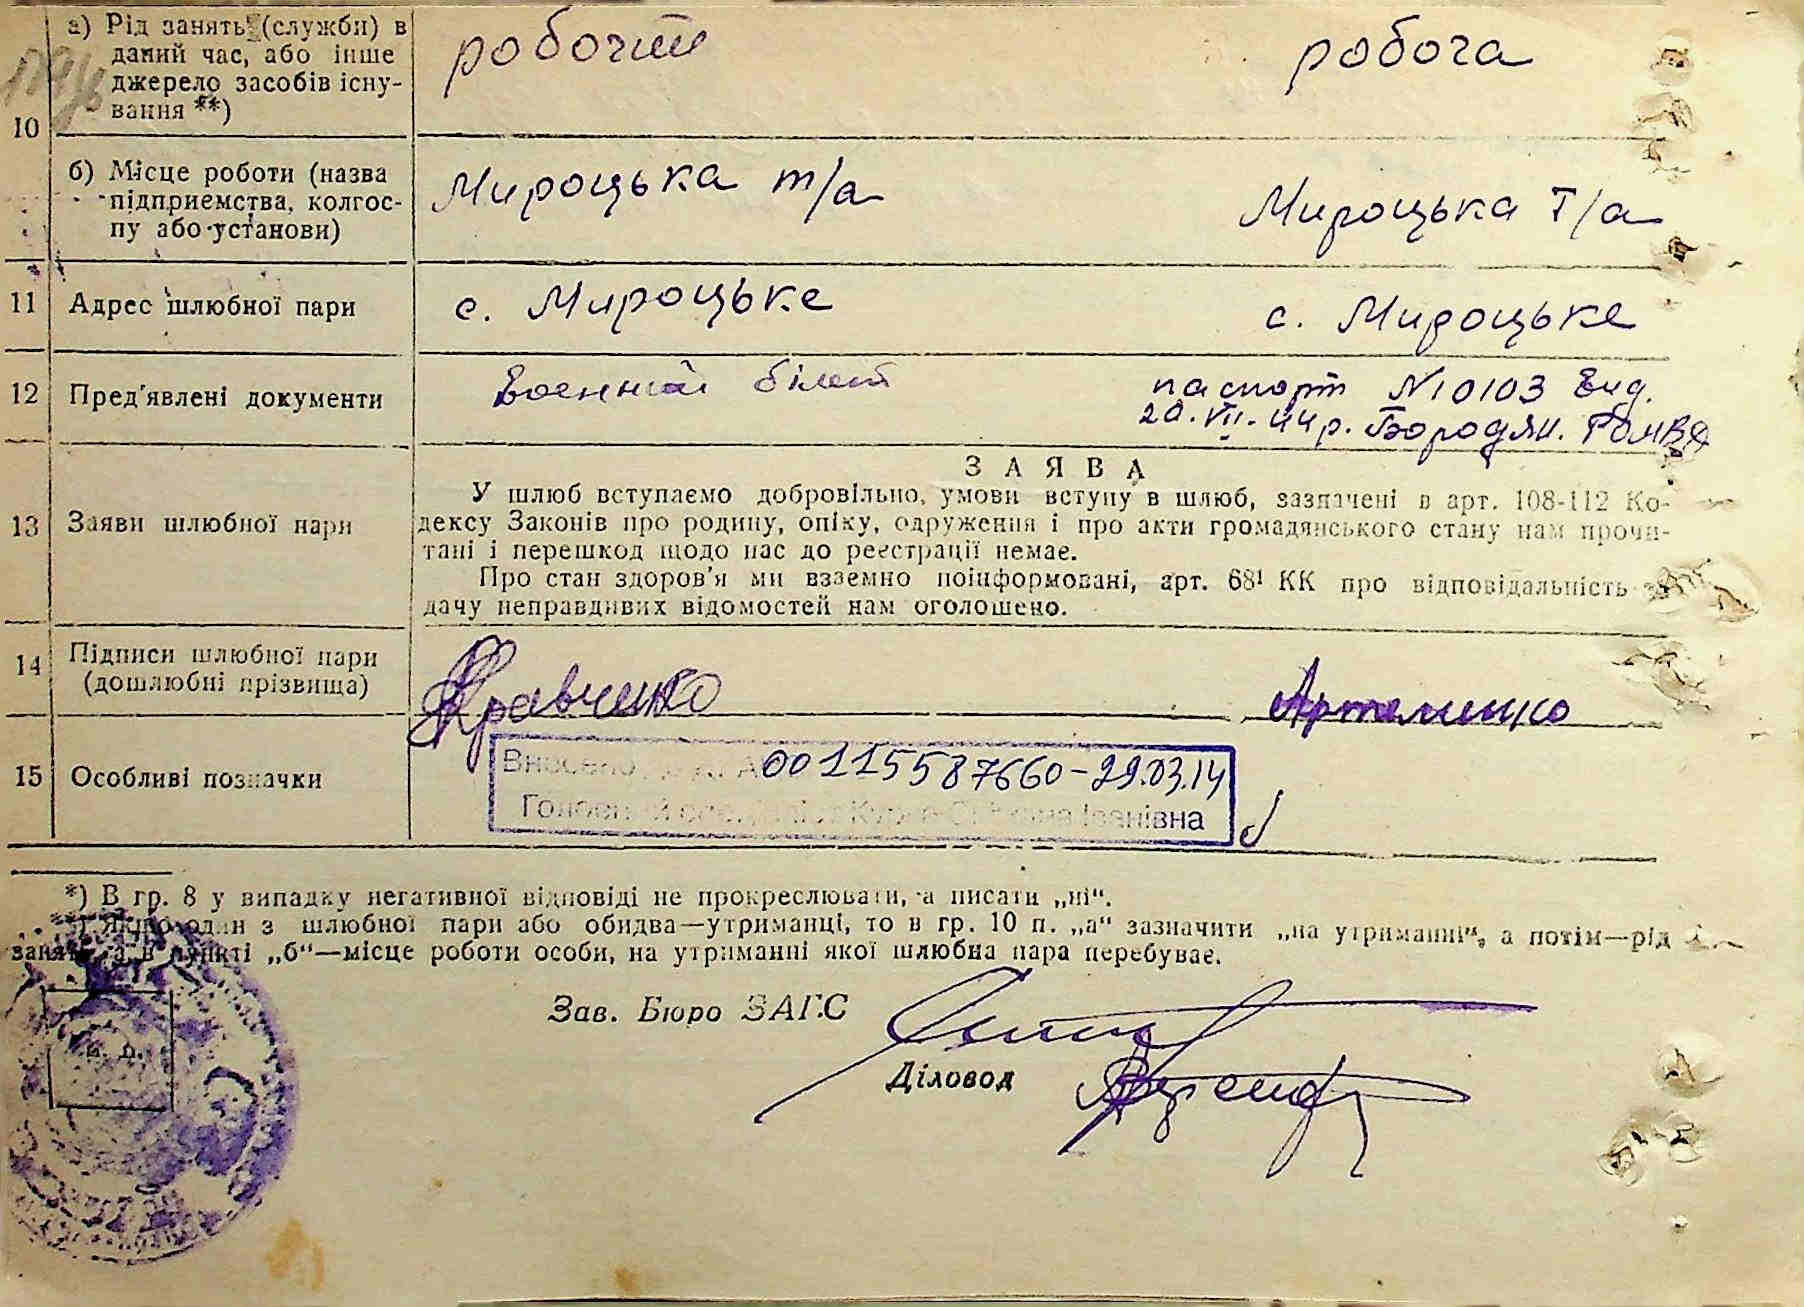 10
а) Рід занять (служби) в
даний час, або інше
джерело засобів існу-
вання **)
робочий
робоча
б) Місце роботи (назва
підприємства, колгос-
пу або установи)
Мироцька т/а
Мироцька т/а
11
Адрес шлюбної пари
с. Мироцьке
с. Мироцьке
12
Пред'явлені документи
Военний білет
паспорт N10103 вид.
20.VII.44 р. Бородян.
13
Заяви шлюбної пари
ЗАЯВА
У шлюб вступаємо добровільно, умови вступу в шлюб, зазначені в арт. 108-112 Ко-
дексу Законів про родину, опіку, одруження і про акти громадянського стану нам прочи-
тані і перешкод щодо нас до реєстрації немає.
Про стан здоров'я ми взаємно поінформовані, арт. 68¹ КК про відповідальність за
дачу неправдивих відомостей нам оголошено.
14
Підписи шлюбної пари
(дошлюбні прізвища)
Кравченко
Артеменко
15
Особливі позначки
00115587660-29.03.14
Іванівна
*) В гр. 8 у випадку негативної відповіді не прокреслювати, а писати „ні“.
**) Якщо один з шлюбної пари або обидва—утриманці, то в гр. 10 п. „а“ зазначити „на утриманні“, а потім—рід
занять, а в пункті „б“—місце роботи особи, на утриманні якої шлюбна пара перебуває.
Зав. Бюро ЗАГС
Діловод